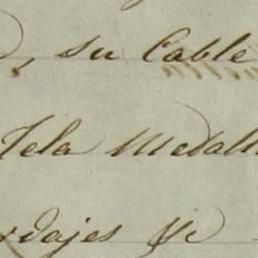 , su Cable
Tela Medall
rdajes &c